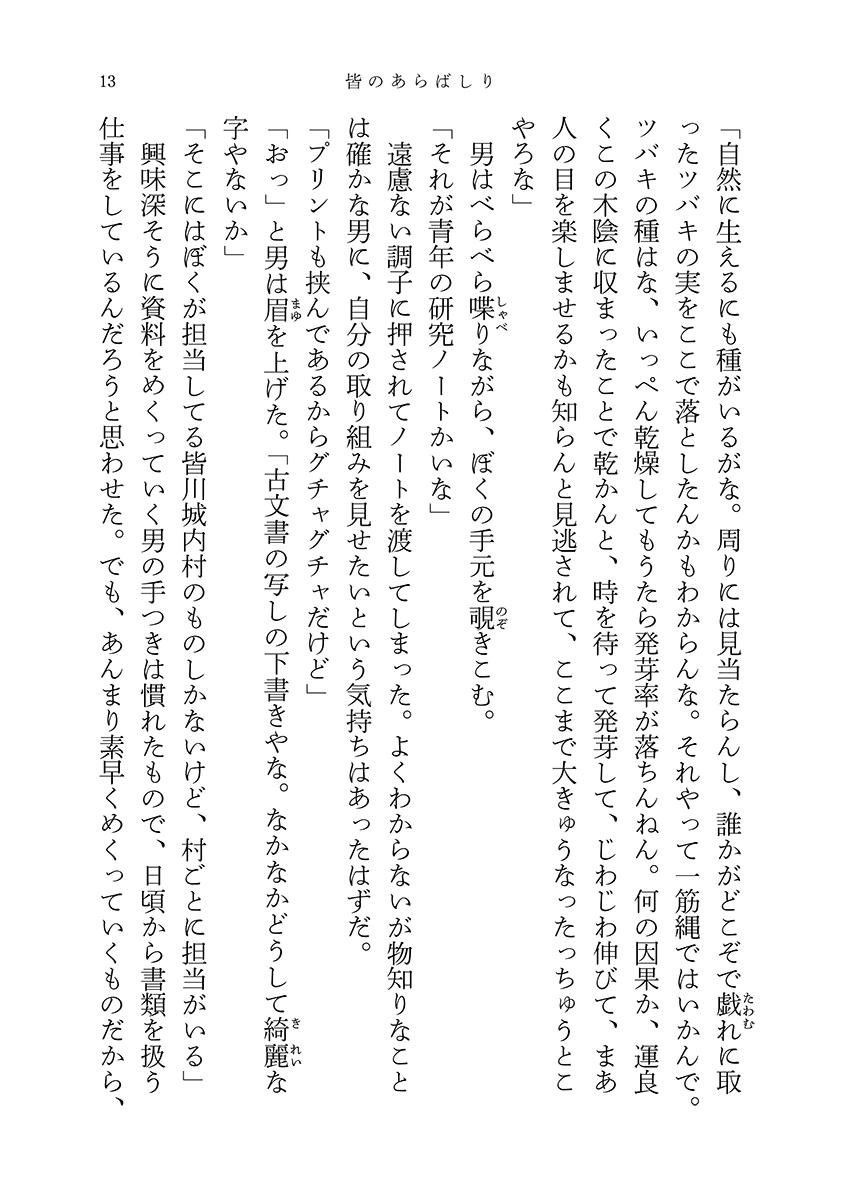 13
皆のあらばしり
「自然に生えるにも種がいるがな。周りには見当たらんし、誰かがどこぞで戯れに取
ったツバキの実をここで落としたんかもわからんな。それやって一筋縄ではいかんで。
ツバキの種はな、いっぺん乾燥してもうたら発芽率が落ちんねん。何の因果か、運良
くこの木陰に収まったことで乾かんと、時を待って発芽して、じわじわ伸びて、まあ
人の目を楽しませるかも知らんと見逃されて、ここまで大きゅうなったっちゅうとこ
やろな」
男はべらべら喋りながら、ぼくの手元を覗きこむ。
「それが青年の研究ノートかいな」
遠慮ない調子に押されてノートを渡してしまった。よくわからないが物知りなこと
は確かな男に、自分の取り組みを見せたいという気持ちはあったはずだ。
「プリントも挟んであるからグチャグチャだけど」
「おっ」と男は眉を上げた。「古文書の写しの下書きやな。なかなかどうして綺麗な
字やないか」
「そこにはぼくが担当してる皆川城内村のものしかないけど、村ごとに担当がいる」
興味深そうに資料をめくっていく男の手つきは慣れたもので、日頃から書類を扱う
仕事をしているんだろうと思わせた。でも、あんまり素早くめくっていくものだから、